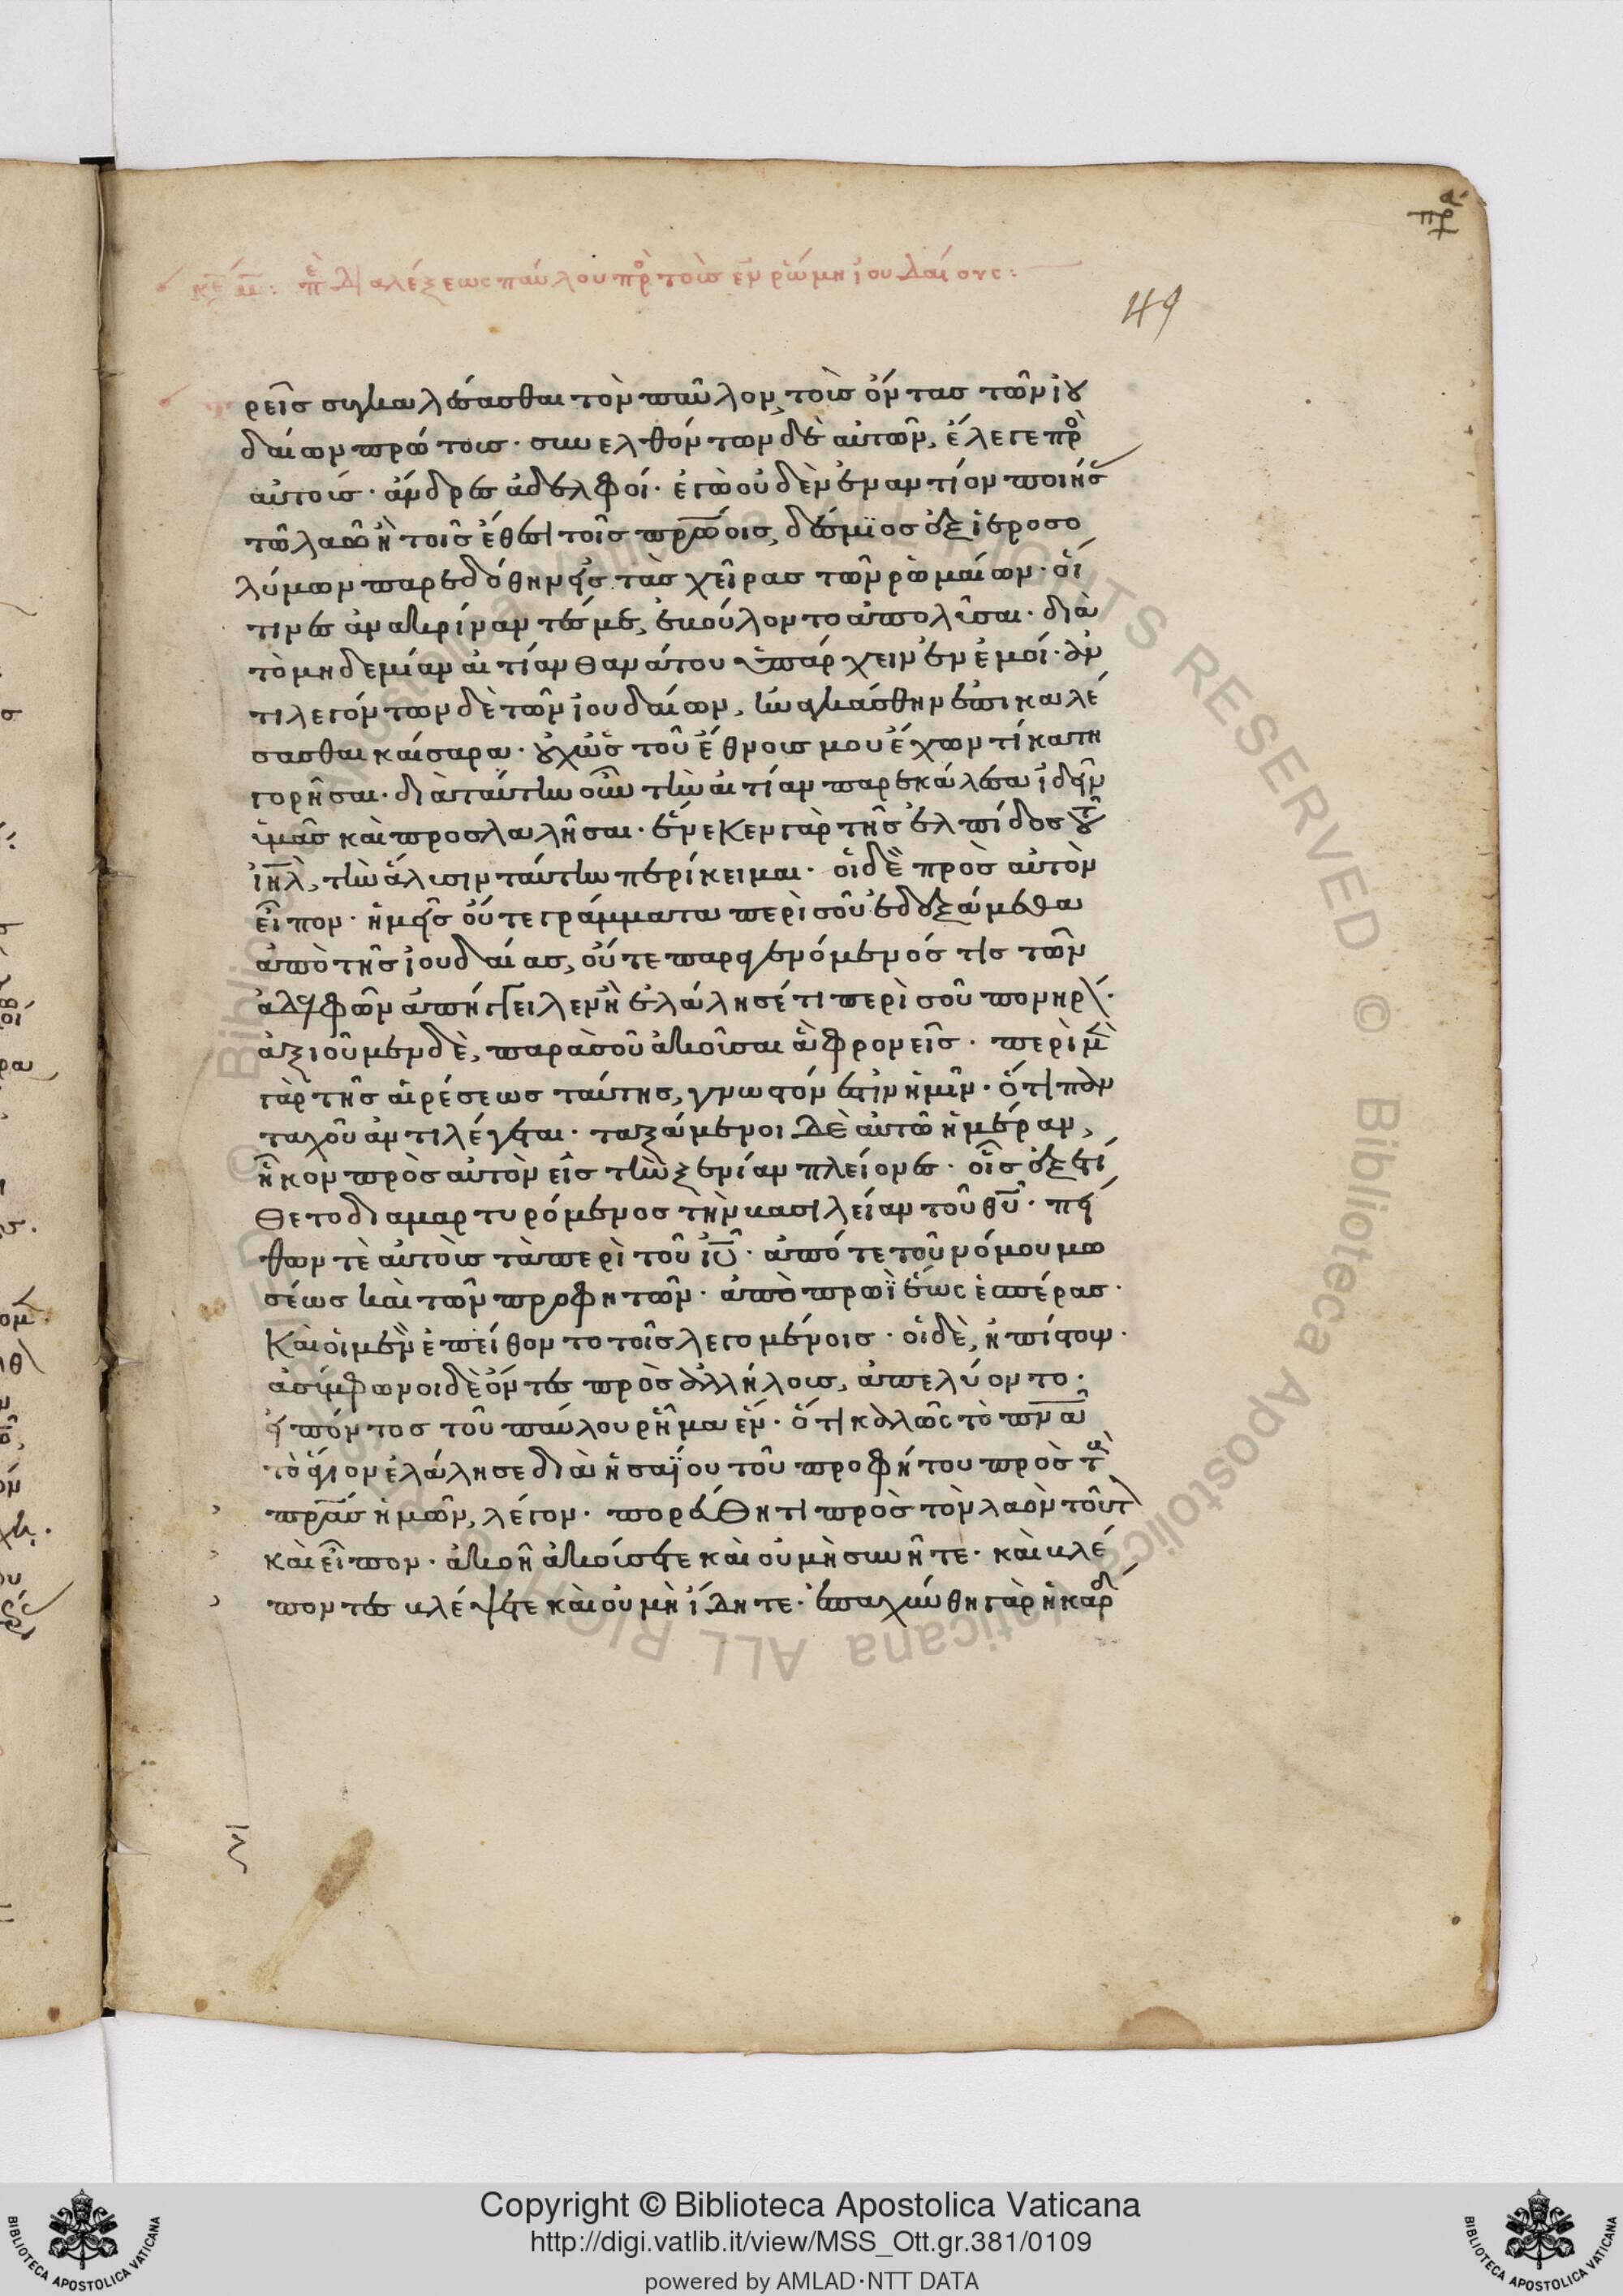 πρα
κε μ: περ διαλέξεως παύλου προς τοὺς ἐν ρώμη ἰουδαίους:
49
ρεῖς συγκαλέσασθαι τὸν παῦλον, τοὺς ὄντας τῶν ἰου
δαίων πρώτους· συνελθόντων δὲ αὐτῶν, ἔλεγε πρὸ
αὐτούς· ἄνδρες ἀδελφοί· ἐγὼ οὐδὲν ἐναντίον ποιήσ
τῶ λαῶ ἢ τοῖς ἔθεσι τοῖς πρώοις, δέσμϊος ἐξ ἱεροσο
λύμων παρεδόθην εἰς τὰς χεῖρας τῶν ρωμαίων· οἵ
τινες ἀνακρίναντές με, ἐβούλοντο ἀπολῦσαι· διὰ
τὸ μηδεμίαν αἰτίαν θανάτου ὑπάρχειν ἐν ἐμοί· ἀν
τιλεγόντων δὲ τῶν ἰουδαίων, ἠναγκάσθην ἐπικαλέ
σασθαι καίσαρα· οὐχ ὡς τοῦ ἔθνους μου ἔχων τί κατη
γορῆσαι· διὰ ταύτην οὖν τὴν αἰτίαν παρεκάλεσα ἰδεῖν
ὑμᾶς καὶ προσλαλῆσαι· ἕνεκεν γὰρ τῆς ἐλπίδος τοῦ
ἰηλ, τὴν ἅλυσιν ταύτην περίκειμαι· οἱ δὲ πρὸς αὐτὸν
εἶπον· ἡμεῖς οὔτε γράμματα περὶ σοῦ ἐδεξάμεθα
ἀπὸ τῆς ἰουδαίας, οὔτε παραγενόμενός τις τῶν
ἀδελφῶν ἀπήγγειλεν ἢ ἐλάλησέ τι περὶ σοῦ πονηρ·
ἀξιοῦμεν δὲ, παρὰ σοῦ ἀκοῦσαι ἃ φρονεῖς· περὶ μὲ
γὰρ τῆς αἱρέσεως ταύτης, γνωστόν ἐστιν ἡμῖν· ὅτι παν
ταχοῦ ἀντιλέγεται· ταξάμενοι δὲ αὐτῶ ἡμέραν,
ἧκον πρὸς αὐτὸν εἰς τὴν ξενίαν πλείονες· οἷς ἐξετί
θετο διαμαρτυρόμενος τὴν βασιλείαν τοῦ θυ· πεί
θων τὲ αὐτοὺς τὰ περὶ τοῦ ιυ· ἀπό τε τοῦ νόμου μω
σέως καὶ τῶν προφητῶν· ἀπὸ πρωῒ ἕως ἑσπέρας·
καὶ οἱ μὲν ἐπείθοντο τοῖς λεγομένοις· οἱ δὲ, ἠπίστουν·
ἀσύμφωνοι δὲ ὄντες πρὸς ἀλλήλους, ἀπελύοντο·
εἰπόντος τοῦ παύλου ρῆμα ἕν· ὅτι καλῶς τὸ πνα
τὸ ἅγιον ἐλάλησε διὰ ἡσαΐου τοῦ προφήτου πρὸς τοὺ
πρας ἡμῶν, λέγον· πορεύθητι πρὸς τὸν λαὸν τοῦτ
καὶ εἶπον· ἀκοῆ ἀκούσετε καὶ οὐ μὴ συνῆτε· καὶ βλέ
ποντες βλέψετε καὶ οὐ μὴ ἴδητε· ἐπαχύνθη γὰρ ἡ καρδ
© Biblioteca Apostolica Vaticana ALL RIGHTS RESERVED
Copyright © Biblioteca Apostolica Vaticana
http://digi.vatlib.it/view/MSS_Ott.gr.381/0109
powered by AMLAD·NTT DATA
BIBLIOTECA APOSTOLICA VATICANA
BIBLIOTECA APOSTOLICA VATICANA